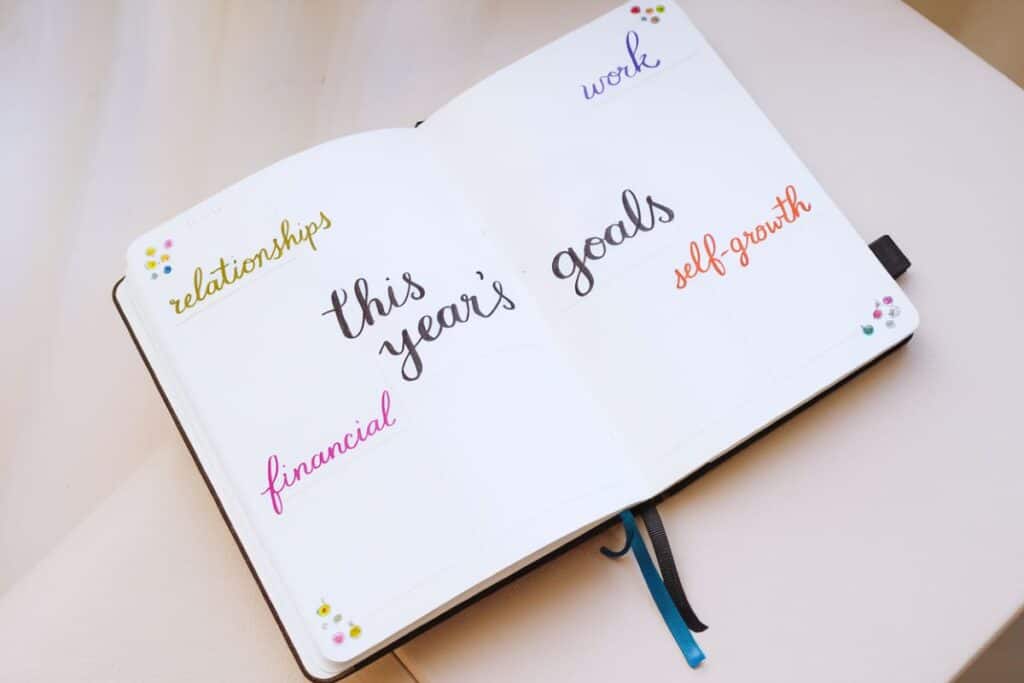 relationships
this
year's
financial
work
goals
self-growth